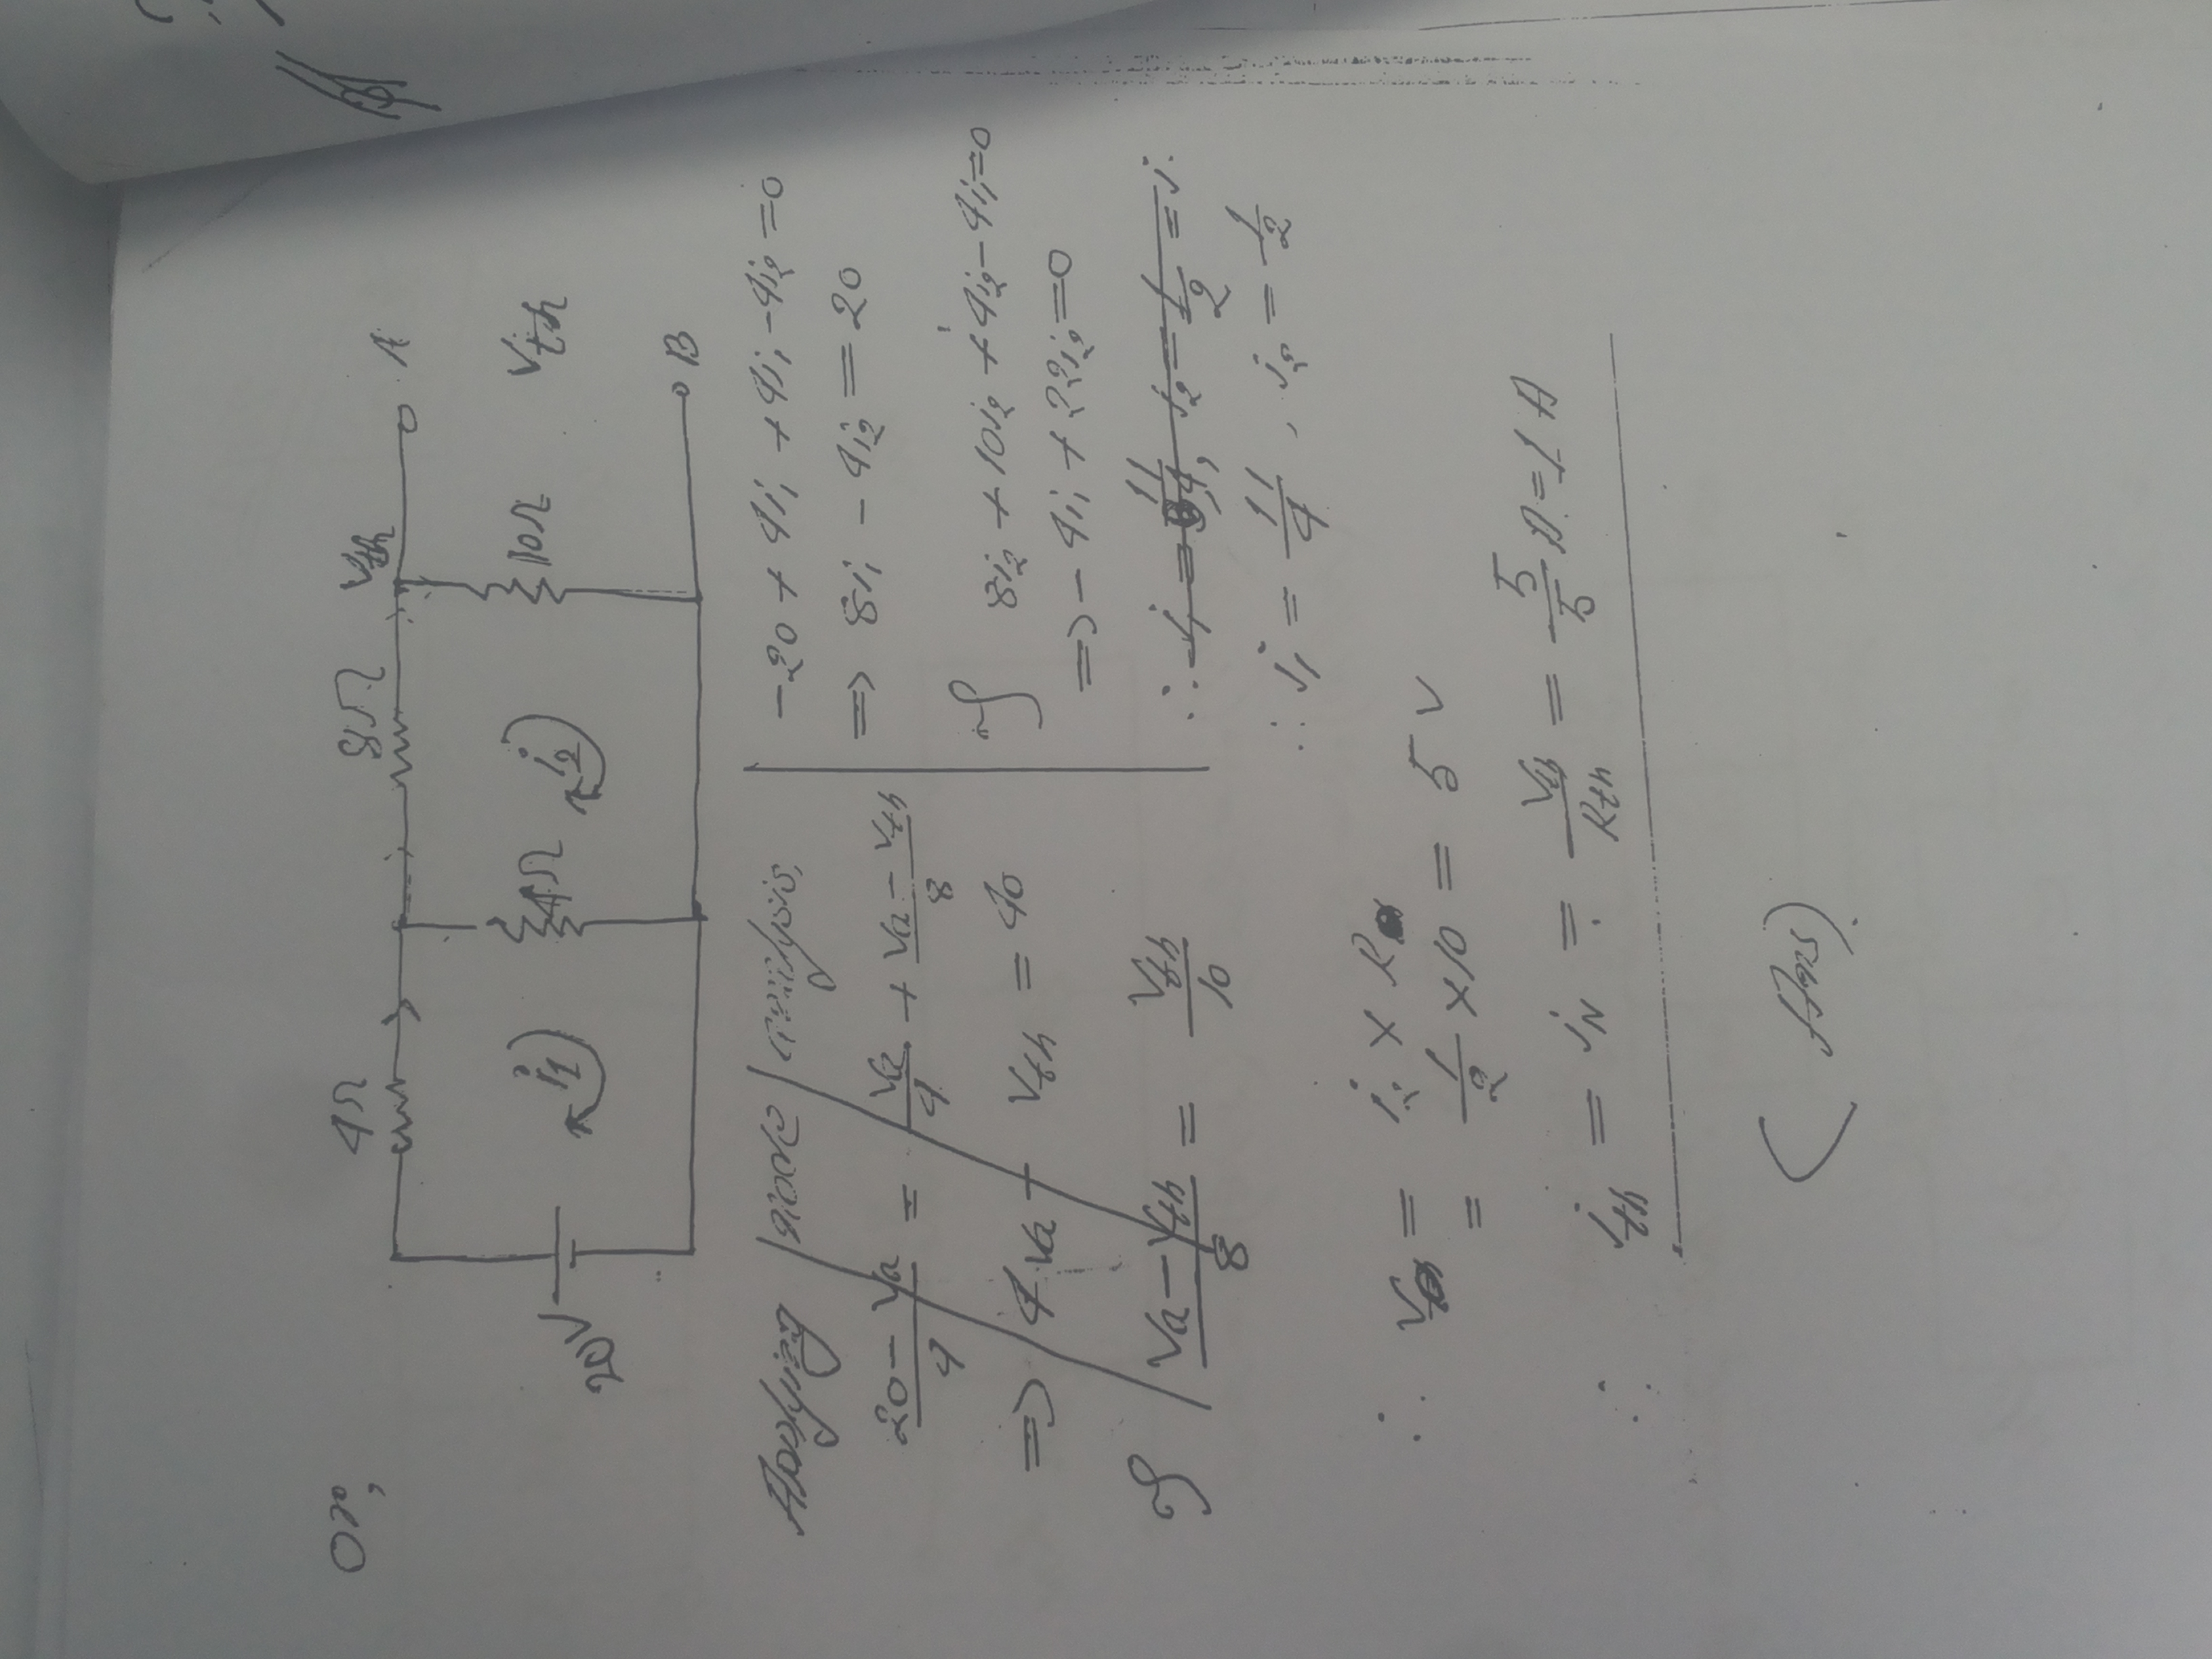 or,
4Ω
8Ω
Vth
A
20V
i₁
4Ω
i₂
10Ω
Vth
B
Applying node analysis,
(20 - Va)/4 = Va/4 + (Va - Vth)/8
=> 4Va - Vth = 40
(Va - Vth)/8 = Vth/10
-20 + 4i₁ + 4i₁ - 4i₂ = 0
=> 8i₁ - 4i₂ = 20
8i₂ + 10i₂ + 4i₂ - 4i₁ = 0
=> - 4i₁ + 22i₂ = 0
∴ i₁ = 11/4, i₂ = 1/2 = i
∴ i₁ = 11/4, i₂ = 1/2
∴ V = i₂ × R
= 1/2 × 10 = 5 V
∴ ith = iN = Vth/Rth = 5/5 A = 1 A
(Ans).